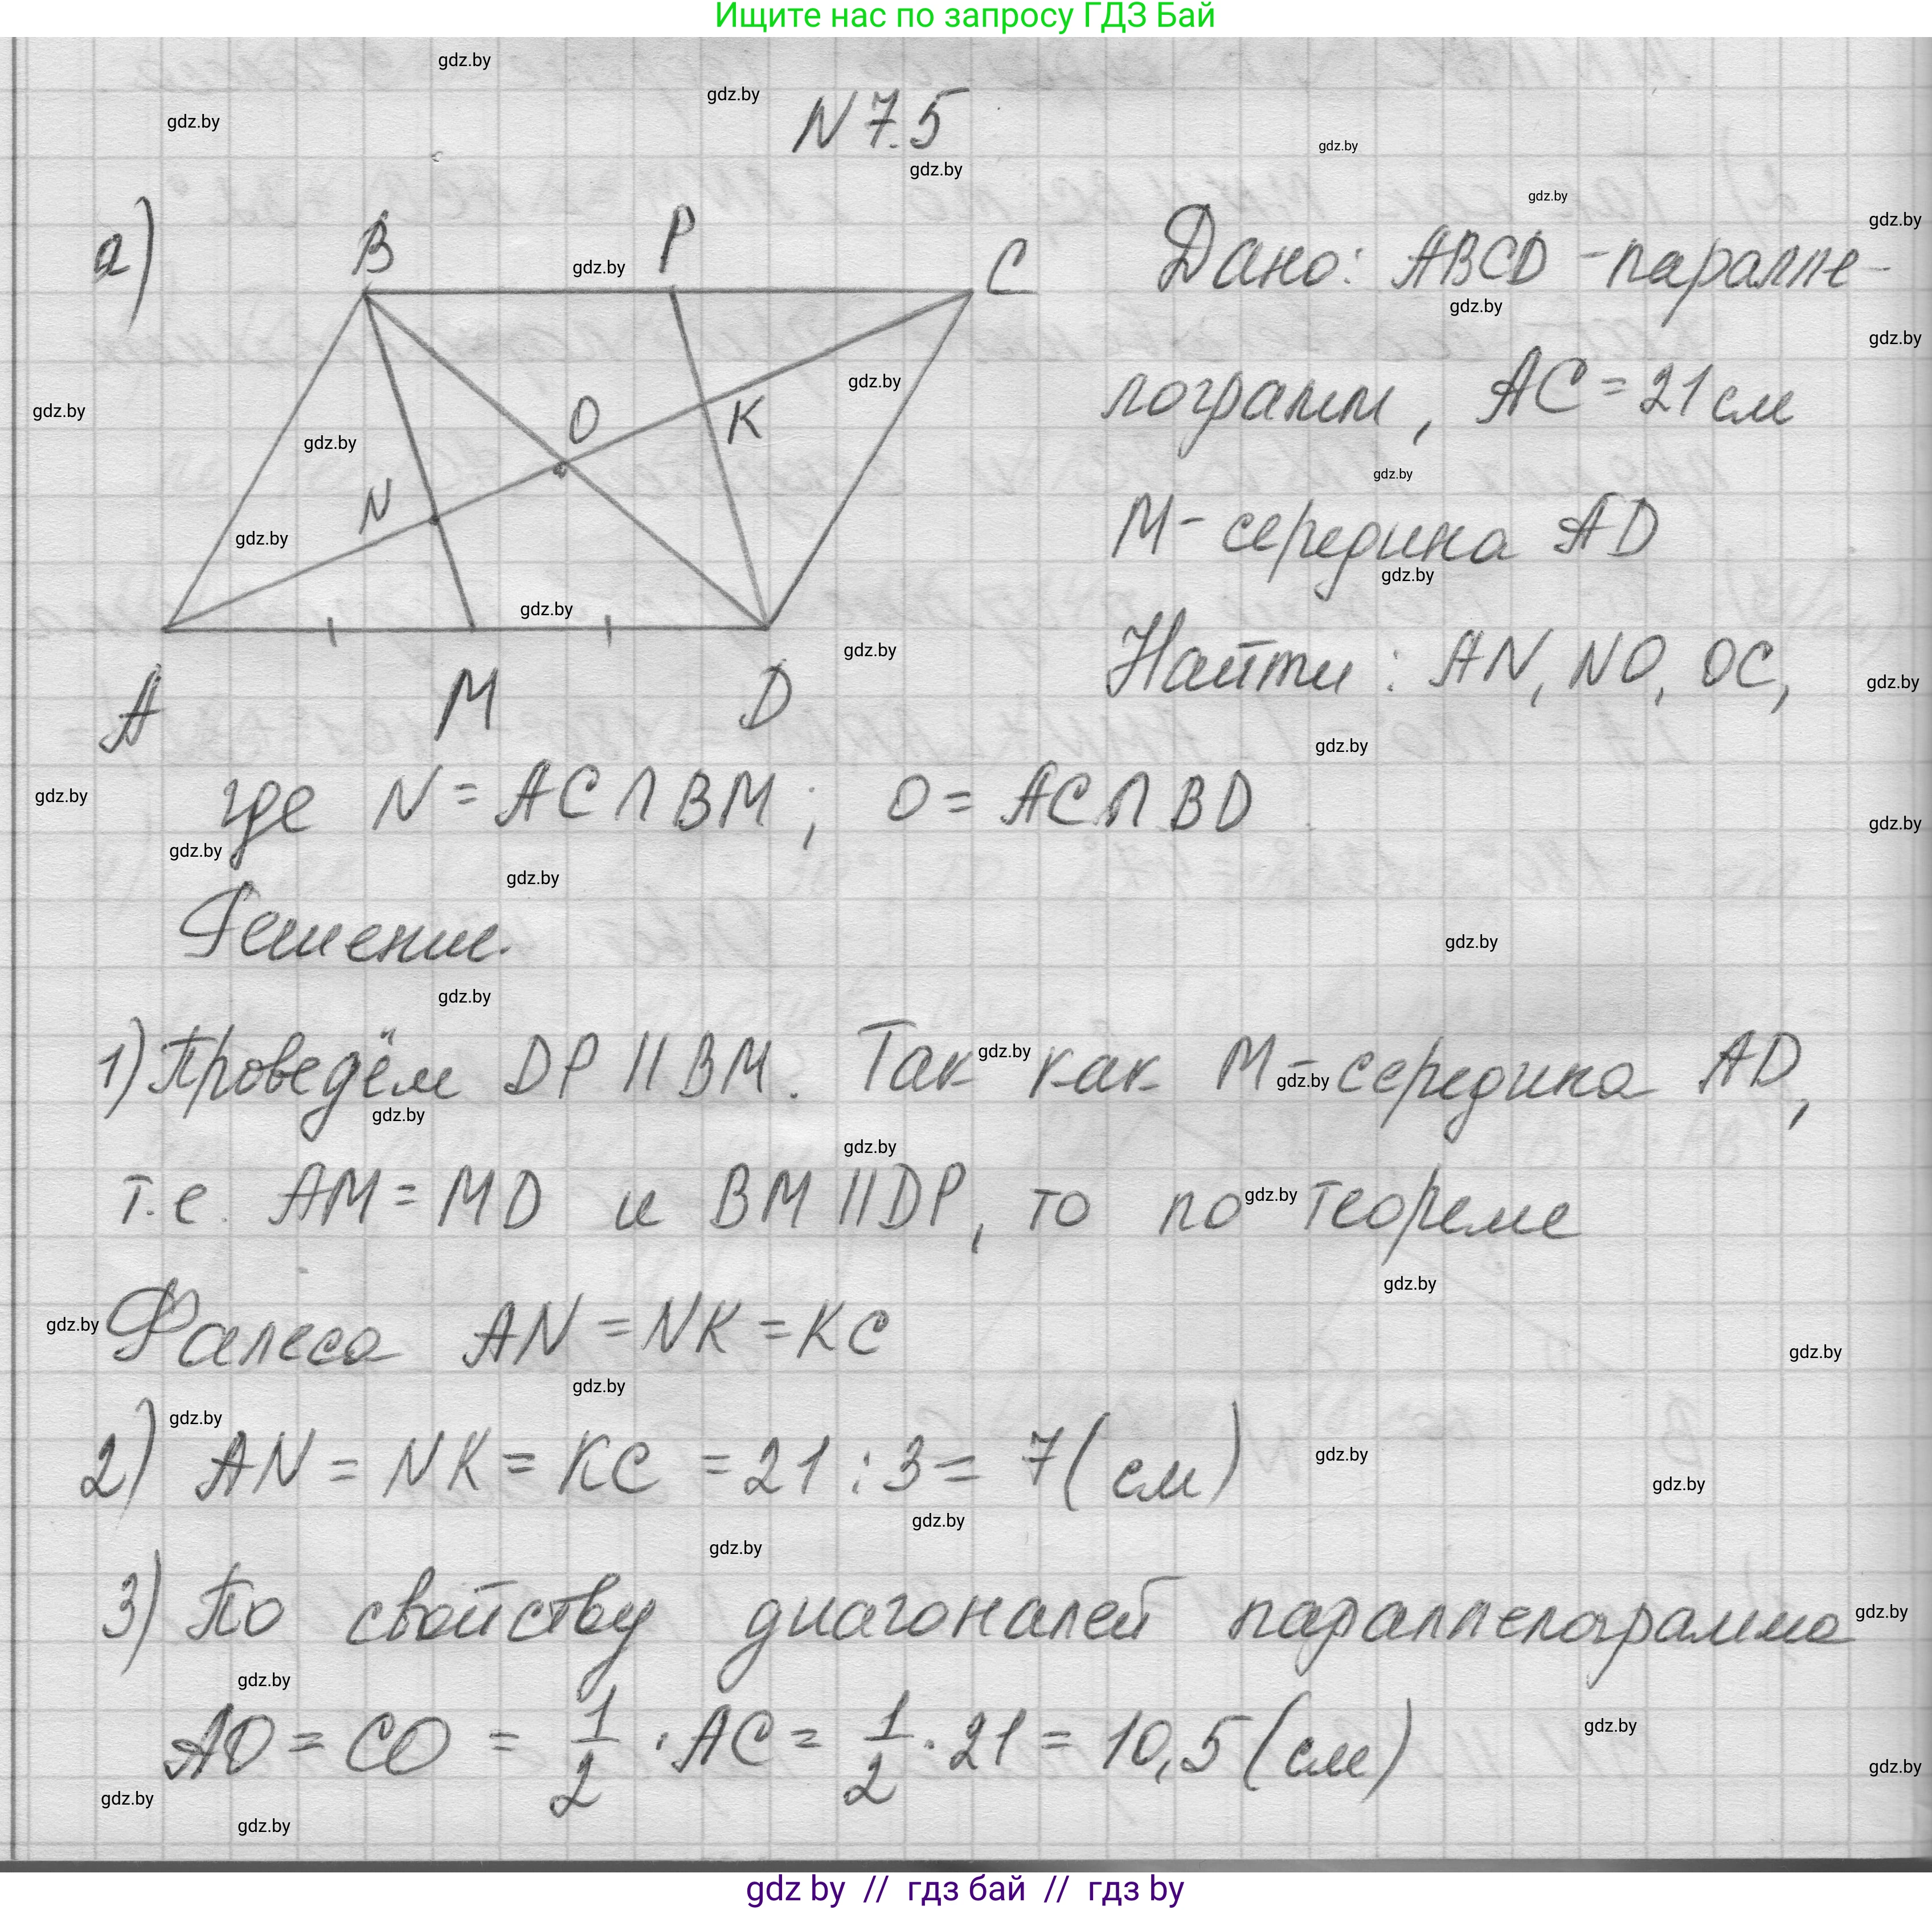 Ищите нас по запросу ГДЗ Бай
N 7.5
а)
B P C
O K
N
A M D
Дано: ABCD - паралле-
лограмм, AC = 21 см
M - середина AD
Найти: AN, NO, OC,
где N = AC ∩ BM; O = AC ∩ BD
Решение.
1) Проведём DP || BM. Так как M - середина AD,
т.е. AM = MD и BM || DP, то по теореме
Фалеса AN = NK = KC
2) AN = NK = KC = 21 : 3 = 7 (см)
3) По свойству диагоналей параллелограмма
AO = CO = 1/2 · AC = 1/2 · 21 = 10,5 (см)
gdz by // гдз бай // гдз by